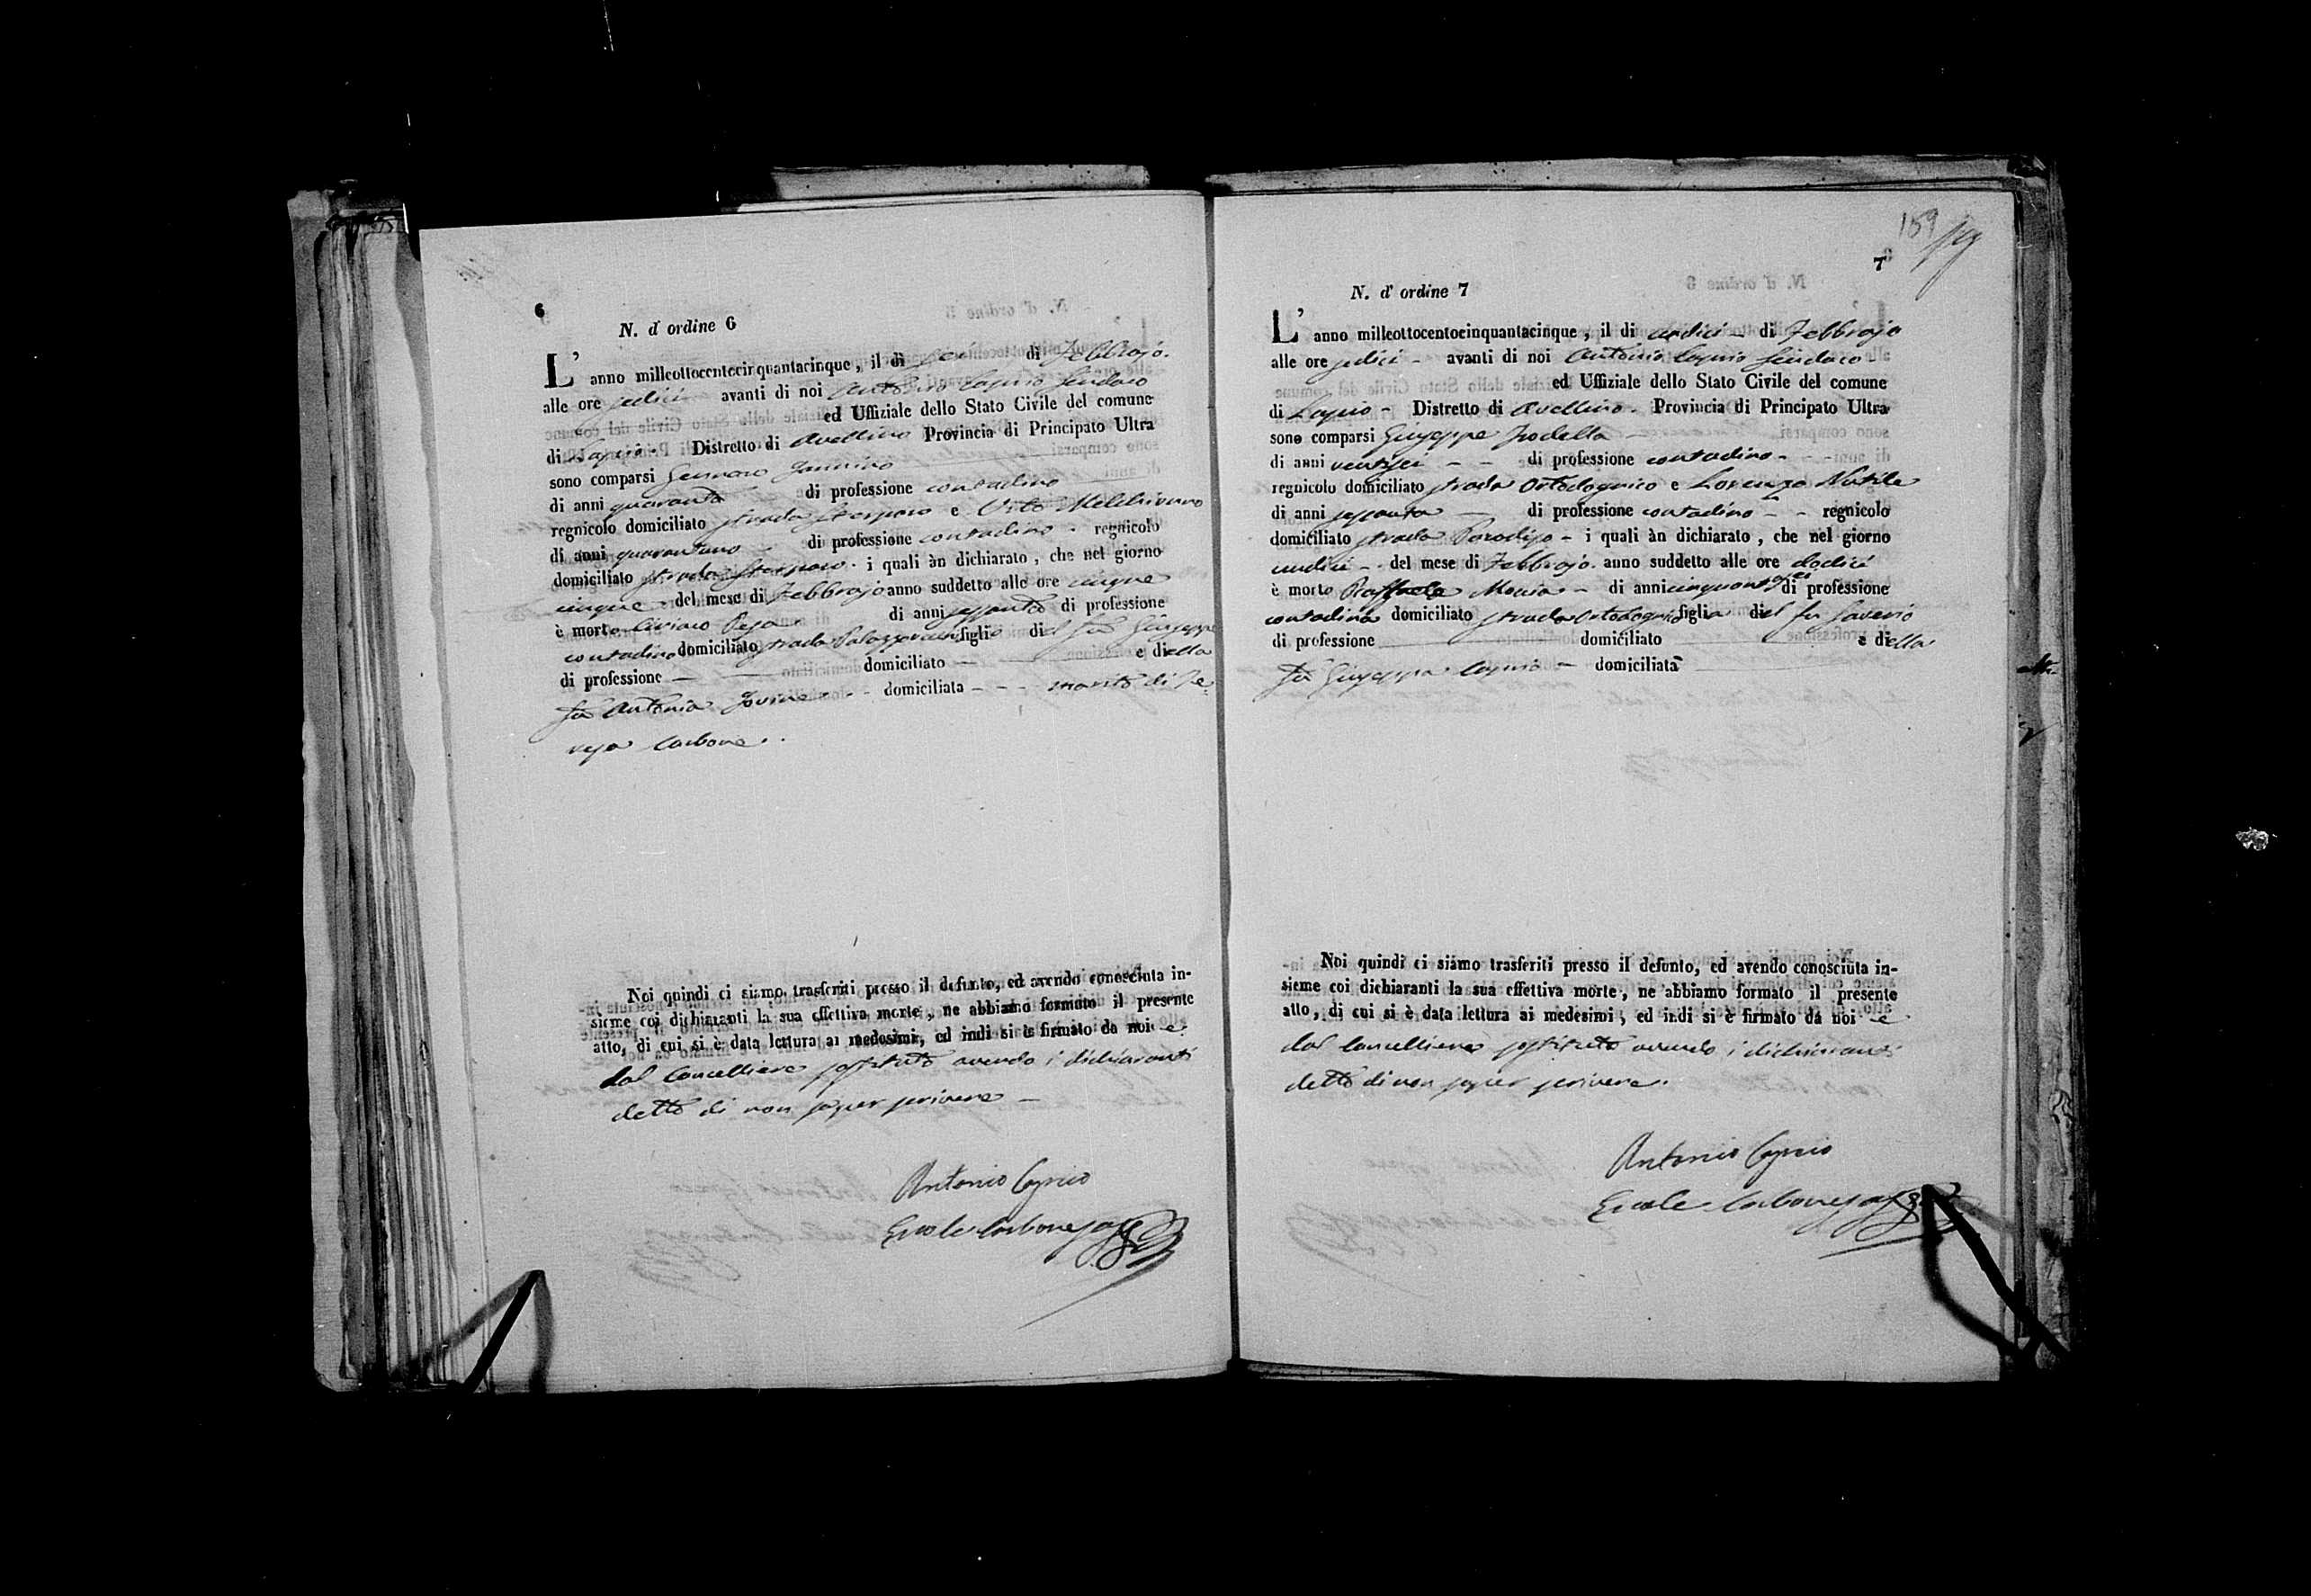 6
N. d' ordine 6
L' anno milleottocentocinquantacinque, il dì sei di Febbrajo.
alle ore sedici avanti di noi Antonio Caprio Sindaco
ed Uffiziale dello Stato Civile del comune
di Lapio - Distretto di Avellino Provincia di Principato Ultra
sono comparsi Gennaro Iannino
di anni quaranta di professione contadino
regnicolo domiciliato strada e Vito Melchionno
di anni quarantuno - di professione contadino - regnicolo
domiciliato strada . i quali àn dichiarato, che nel giorno
cinque - del mese di Febbrajo anno suddetto alle ore cinque
è morto Ciriaco Pepe - di anni sessanta di professione
contadino domiciliato strada figlio del fu Giuseppe
di professione - - domiciliato - e della
fu Antonia Iovine - - domiciliata - - - marito di Te-
resa Carbone.
Noi quindi ci siamo trasferiti presso il defunto, ed avendo conosciuta in-
sieme coi dichiaranti la sua effettiva morte, ne abbiamo formato il presente
atto, di cui si è data lettura ai medesimi, ed indi si è firmato da noi e
dal Cancelliere sostituto avendo i dichiaranti
detto di non saper scrivere -
Antonio Caprio
Ercole Carbone
159
7
N. d' ordine 7
L' anno milleottocentocinquantacinque, il di undici - di Febbrajo
alle ore sedici - avanti di noi Antonio Caprio Sindaco
ed Uffiziale dello Stato Civile del comune
di Lapio - Distretto di Avellino. Provincia di Principato Ultra
sono comparsi Giuseppe
di anni ventisei - - di professione contadino - -
regnicolo domiciliato strada Ortodognico e Lorenzo Nutile
di anni sessanta - di professione contadino - - regnicolo
domiciliato strada Paradiso - i quali àn dichiarato, che nel giorno
undici - del mese di Febbrajo. anno suddetto alle ore dodici
è morta Raffaela - di anni di professione
contadina domiciliato strada figlia del fu Saverio
di professione domiciliato e della
fu Giuseppa Caprio - domiciliata
Noi quindi ci siamo trasferiti presso il defonto, ed avendo conosciuta in-
sieme coi dichiaranti la sua effettiva morte, ne abbiamo formato il presente
atto, di cui si è data lettura ai medesimi, ed indi si è firmato da noi e
dal Cancelliere sostituto avendo i dichiaranti
detto di non saper scrivere.
Antonio Caprio
Ercole Carbone